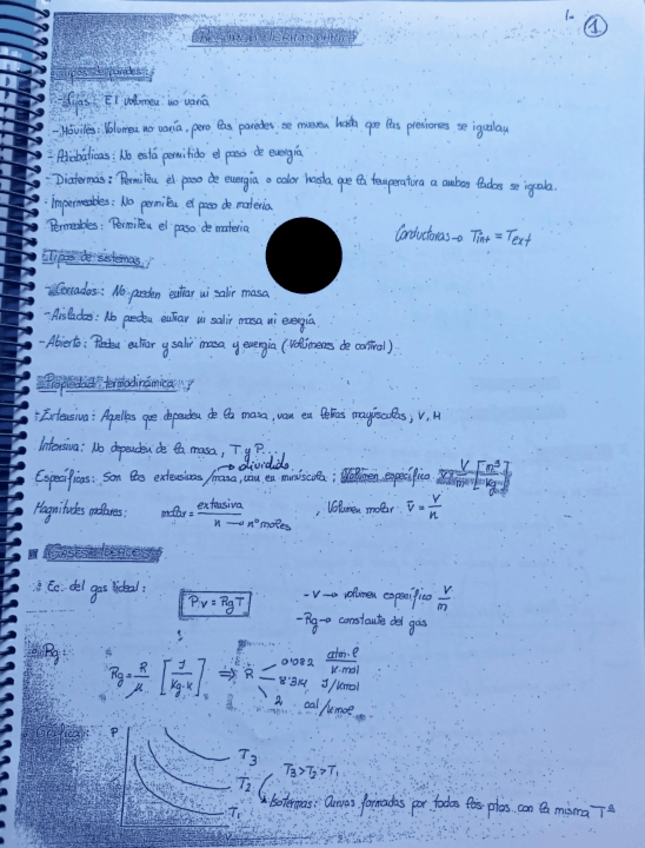 1.
1
Tipos de paredes:
- Fijas: El volumen no varía
- Móviles: Volumen no varía, pero las paredes se mueven hasta que las presiones se igualan
- Adiabáticas: No está permitido el paso de energía
- Diatermas: Permiten el paso de energía o calor hasta que la temperatura a ambos lados se iguala.
- Impermeables: No permiten el paso de materia
Permeables: Permiten el paso de materia
Conductoras → Tint = Text
Tipos de sistemas:
- Cerrados: No pueden entrar ni salir masa
- Aislados: No pueden entrar ni salir masa ni energía
- Abierto: Pueden entrar y salir masa y energía (Volúmenes de control)
Propiedad termodinámica:
- Extensiva: Aquellas que dependen de la masa, van en letras mayúsculas, V, H
Intensiva: No dependen de la masa, T y P.
→ dividido
Específicas: Son las extensivas /masa, van en minúscula; Volumen específico V/m [m³/kg]
Magnitudes molares: molar = extensiva/n → nº moles , Volumen molar v̄ = V/n
GASES IDEALES
Ec. del gas ideal: P·v = RgT
- V → volumen específico V/m
- Rg → constante del gas
Rg:
Rg = R/μ [J/Kg·K] ⇒ R
0'082 atm·l/K·mol
8'314 J/Kmol
2 cal/Kmol
Gráfica:
P
T3
T2
T1
T3 > T2 > T1
Isotermas: Curvas formadas por todos los ptos con la misma Tª